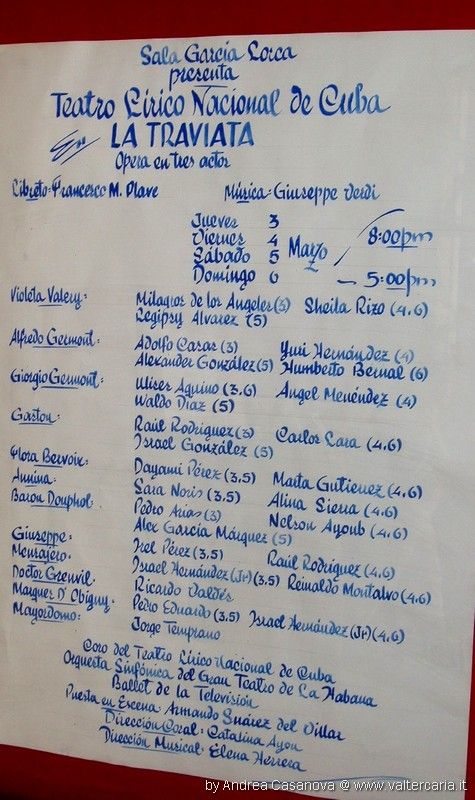 Sala García Lorca
presenta
Teatro Lírico Nacional de Cuba
En LA TRAVIATA
Opera en tres actor
Libreto: Francesco M. Piave Música: Giuseppe Verdi
Jueves 3
Viernes 4 Marzo 8:00pm
Sábado 5
Domingo 6 — 5:00pm
Violeta Valery: Milagros de los Angeles (3) Sheila Rizo (4,6)
Regipsy Alvarez (5)
Alfredo Germont: Adolfo Casas (3) Yuri Hernández (4)
Alexander González (5) Humberto Bernal (6)
Giorgio Germont: Ulises Aquino (3,6) Angel Menéndez (4)
Waldo Díaz (5)
Gaston: Raúl Rodríguez (3) Carlos Lara (4,6)
Israel González (5)
Flora Bervoix: Dayamí Pérez (3,5) Marta Gutierrez (4,6)
Annina: Sara Noris (3,5) Alina Sierra (4,6)
Baron Douphol: Pedro Arias (3) Nelson Ayoub (4,6)
Alex García Márquez (5)
Giuseppe: Pérez (3,5) Raúl Rodríguez (4,6)
Mensajero: Israel Hernández (Jr) (3,5) Reinaldo Montalvo (4,6)
Doctor Grenvil: Ricardo Valdés
Marques D' Obigny: Pedro Eduardo (3,5) Israel Hernández (Jr) (4,6)
Mayordomo: Jorge Temprano
Coro del Teatro Lírico Nacional de Cuba
Orquesta Sinfónica del Gran Teatro de La Habana
Ballet de la Televisión
Puesta en Escena: Armando Suárez del Villar
Dirección Coral: Catalina Ayon
Dirección Musical: Elena Herrera
by Andrea Casanova @ www.valtercaria.it